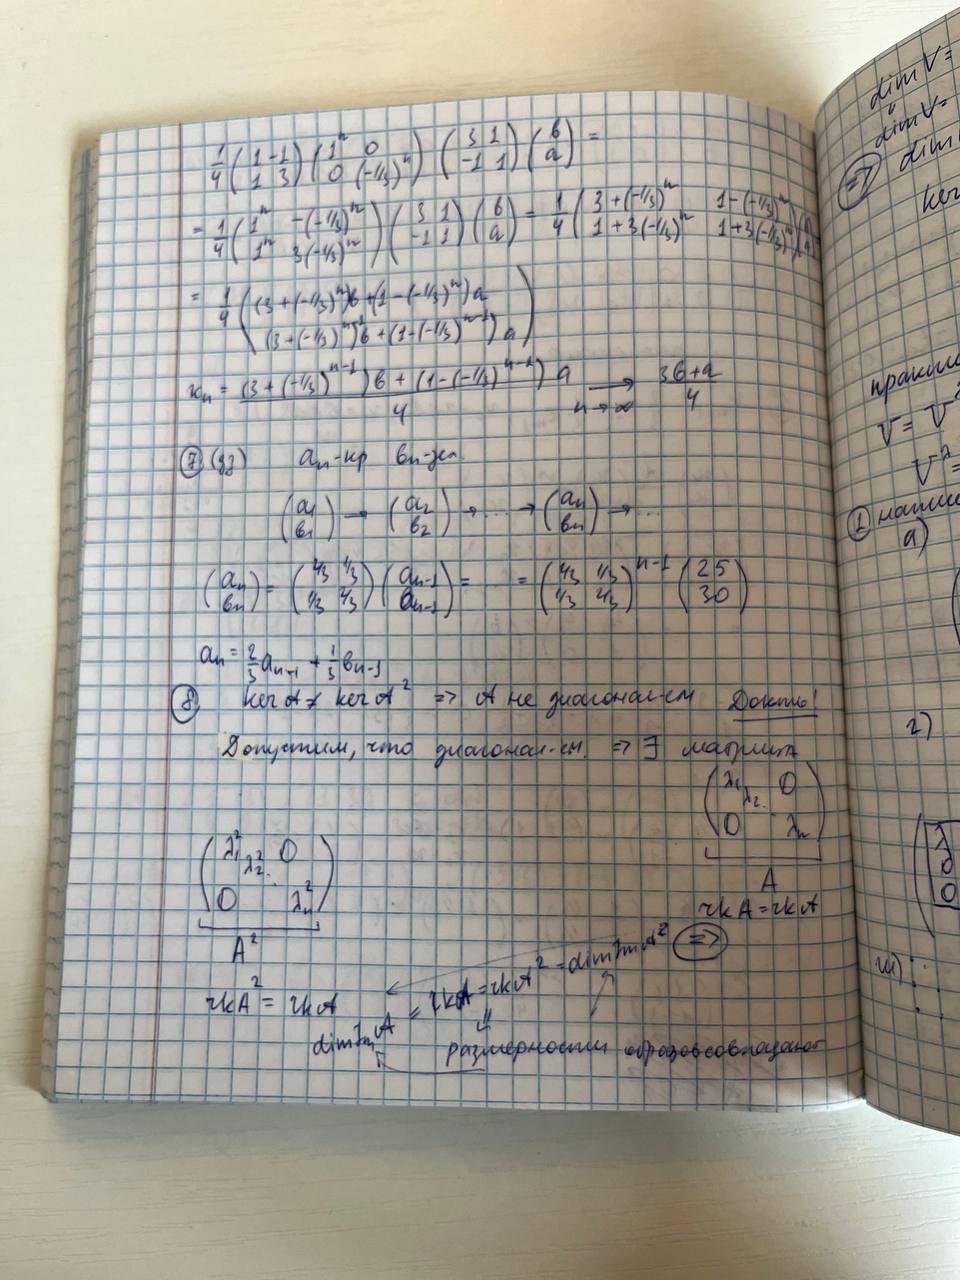 1/4 (1 -1; 1 3) (1^n 0; 0 (-1/3)^n) (3 1; -1 1) (b; a) =
= 1/4 (1^n -(-1/3)^n; 1^n 3(-1/3)^n) (3 1; -1 1) (b; a) = 1/4 (3+(-1/3)^n 1-(-1/3)^n; 1+3(-1/3)^n 1+3(-1/3)^n)
= 1/4 ((3+(-1/3)^n)b+(1-(-1/3)^n)a; (3+(-1/3)^{n-1})b+(1-(-1/3)^{n-1})a)
x_n = ((3+(-1/3)^{n-1})b + (1-(-1/3)^{n-1})a)/4 → n→∞ (3b+a)/4
⑦ (дз) a_n-кр b_n-зел.
(a_1; b_1) → (a_2; b_2) → ... → (a_n; b_n) → ...
(a_n; b_n) = (2/3 1/3; 1/3 2/3) (a_{n-1}; b_{n-1}) = = (2/3 1/3; 1/3 2/3)^{n-1} (25; 30)
a_n = 2/3 a_{n-1} + 1/3 b_{n-1}
⑧ ker A ≠ ker A² => A не диагонал-ем Док-ть!
Допустим, что диагонал-ем. => ∃ матрица
(λ_1 λ_2. 0; 0 . λ_n)
A
rk A = rk A
=>
(λ_1² λ_2². 0; 0 . λ_n²)
A²
rk A² = rk A
dim Im A = rk A = rk A² = dim Im A²
размерности образов совпадают
dim V =
dim V =
dim
=>
ker
V = V
V^λ =
①
а)
2)
λ
0
0